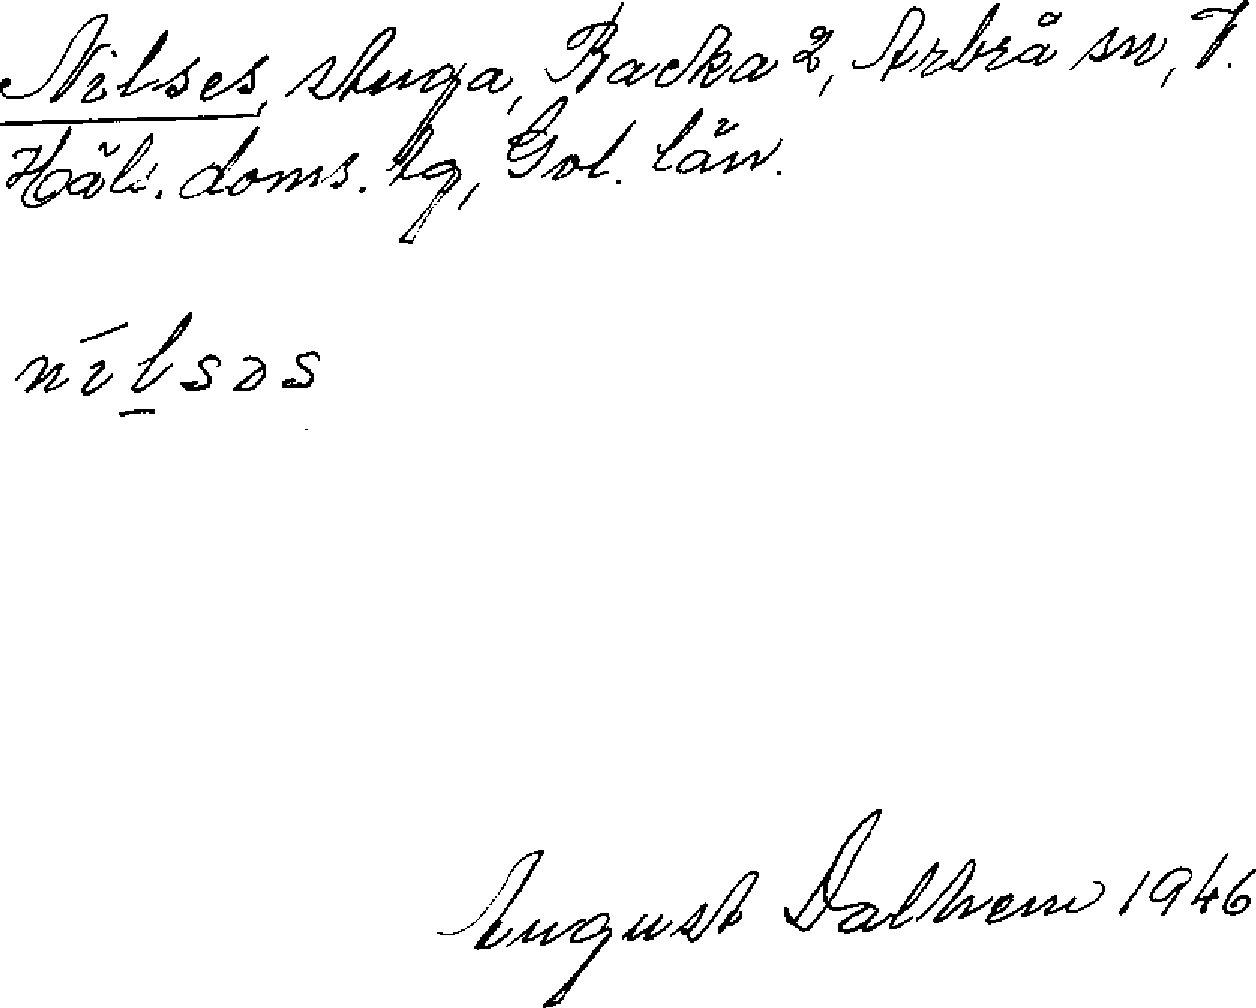 Nilses, stuga, Backa 2, Arbrå sn, V.
Häls. doms. hg, Gvl. län.
nílsəs
August Dalhem 1946